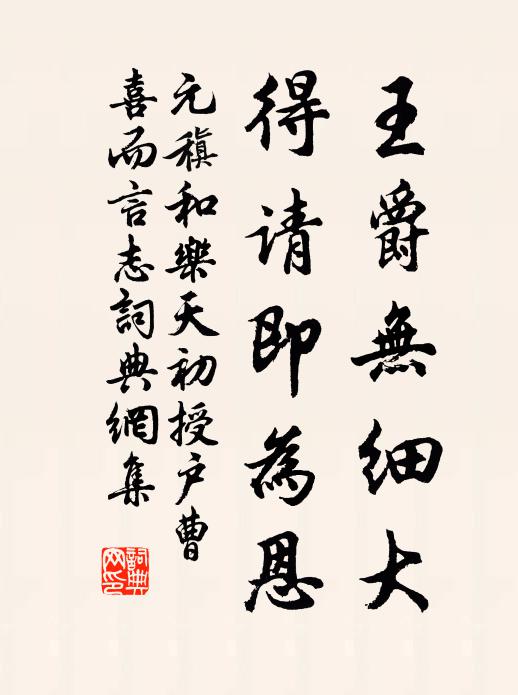 王爵無細大
得请即為恩
元稹和樂天初授户曹
喜而言志詞典網集
詞典网印